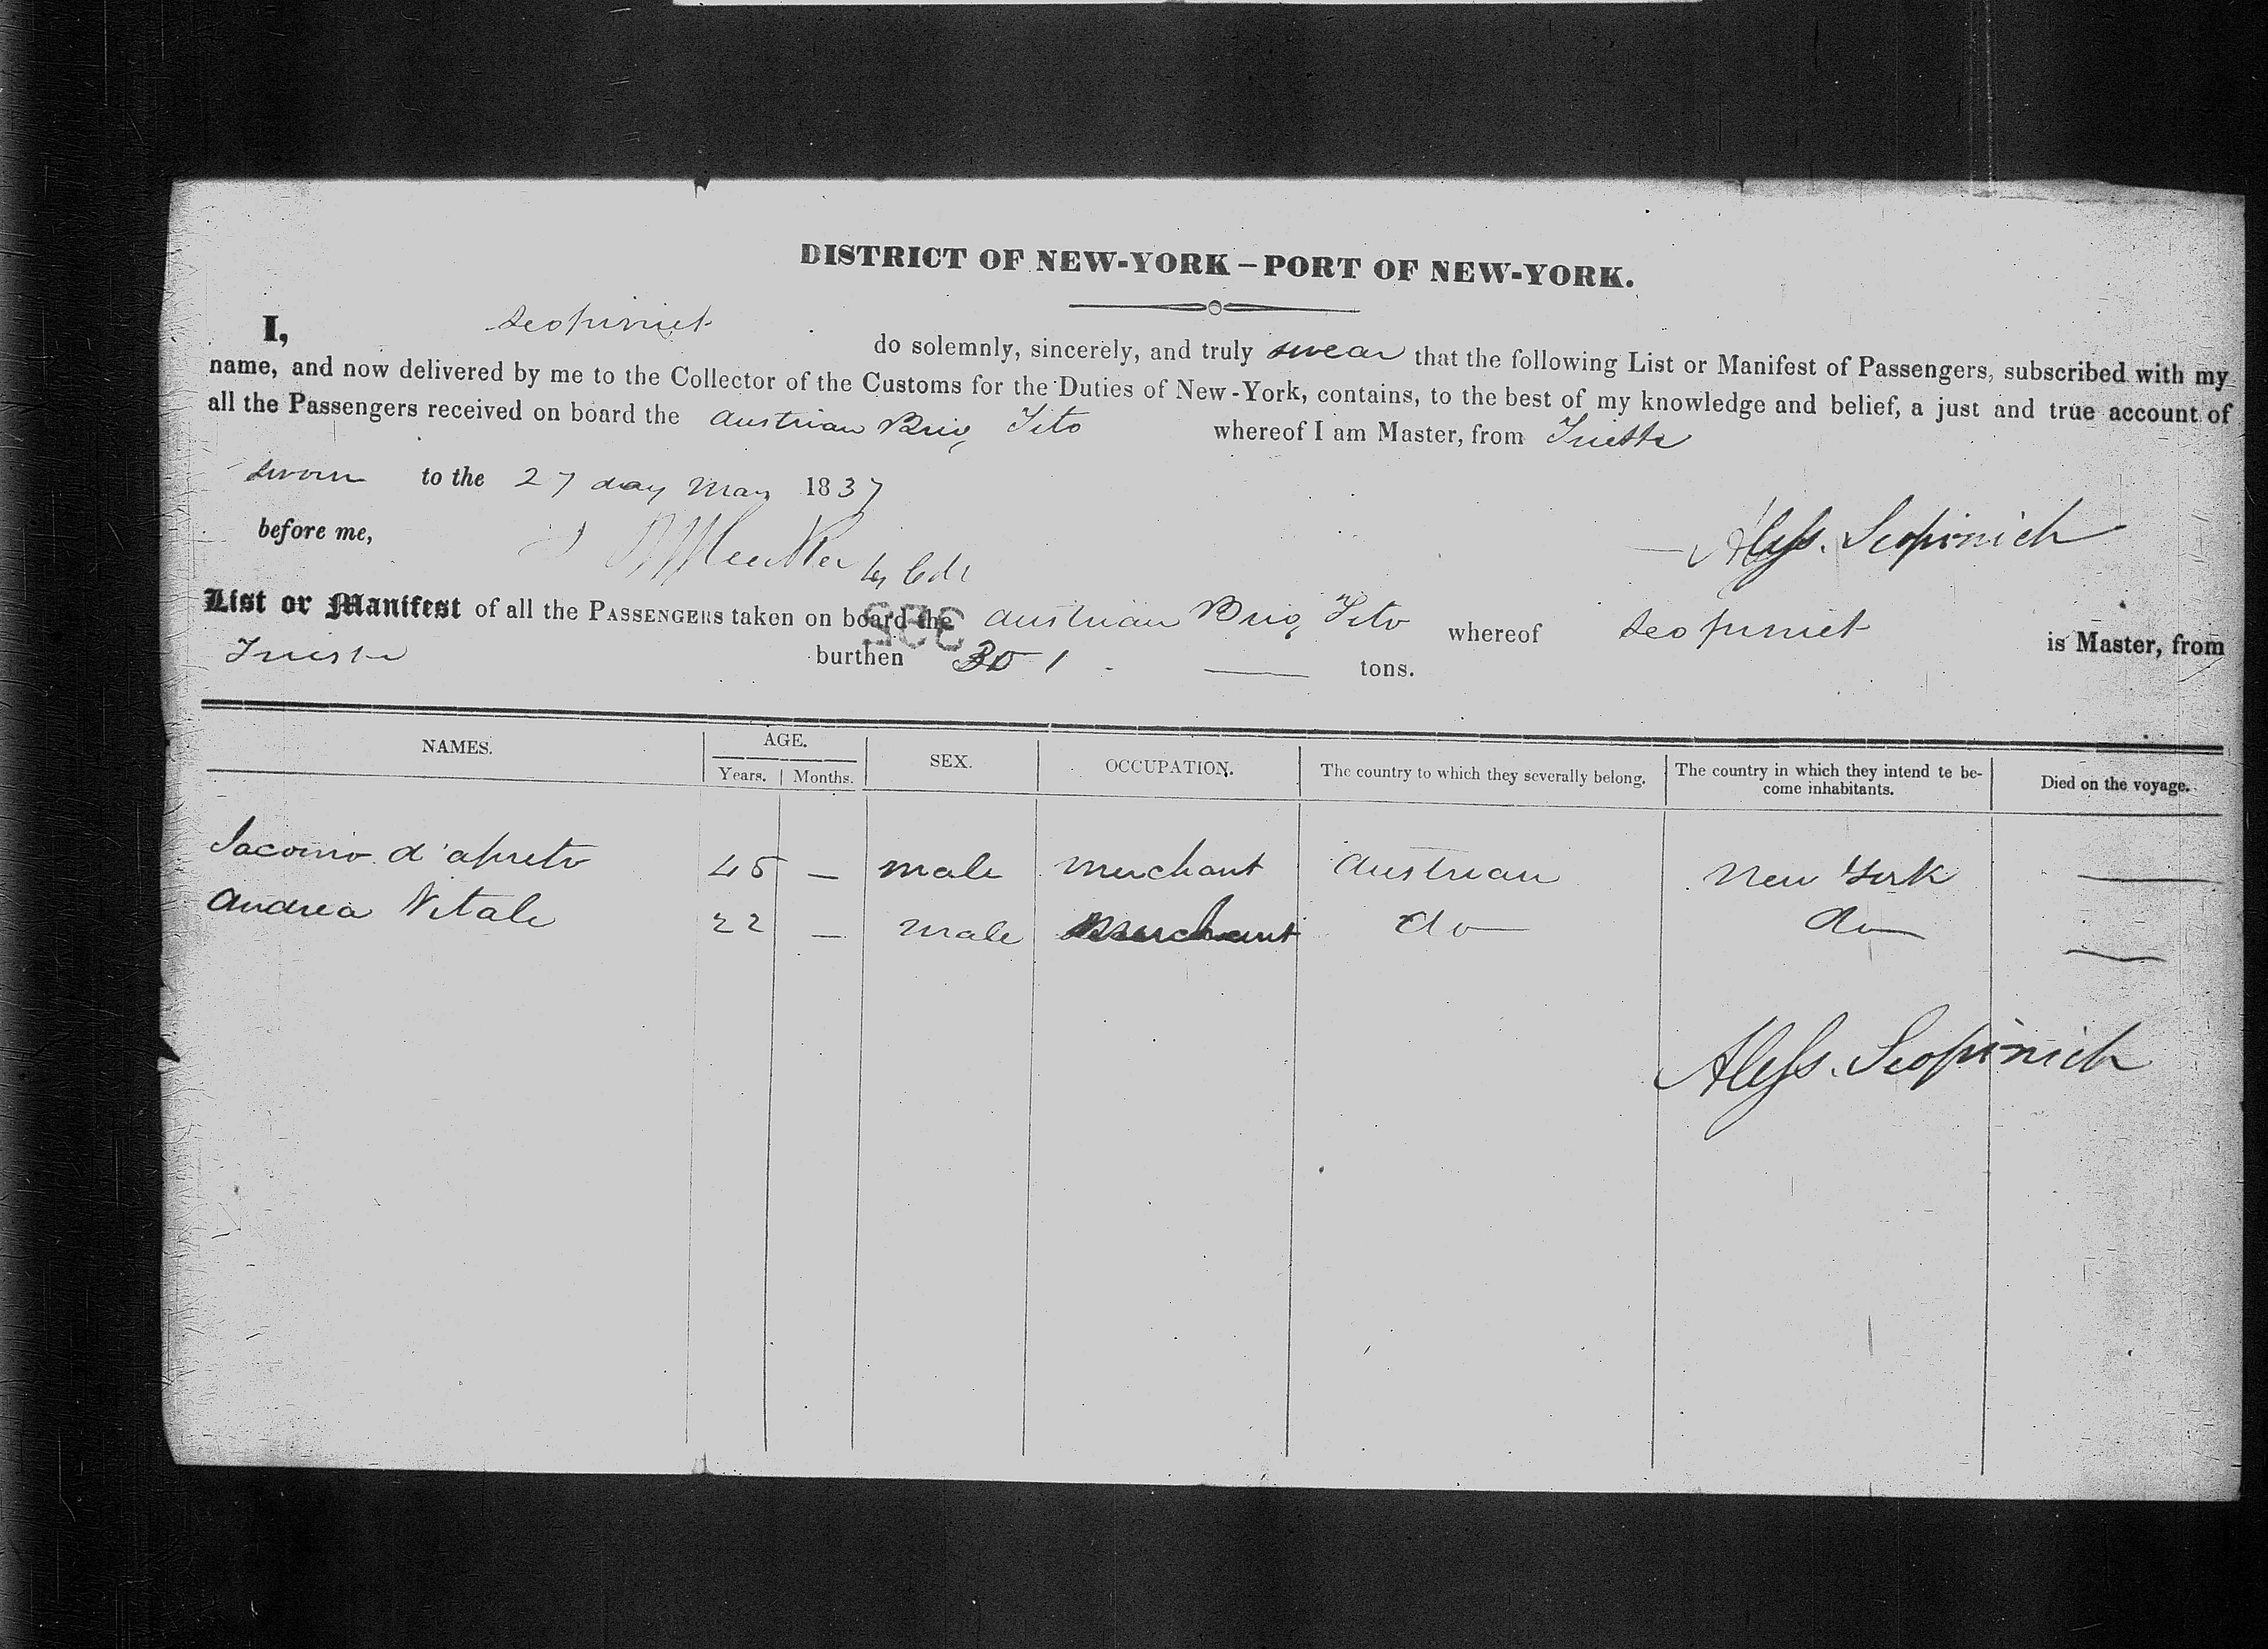 DISTRICT OF NEW-YORK – PORT OF NEW-YORK.
I, Scopinict do solemnly, sincerely, and truly swear that the following List or Manifest of Passengers, subscribed with my
name, and now delivered by me to the Collector of the Customs for the Duties of New-York, contains, to the best of my knowledge and belief, a just and true account of
all the Passengers received on board the Austrian Brig Tito whereof I am Master, from Trieste
sworn to the 27 day May 1837
before me,
Aless. Scopinich
List or Manifest of all the PASSENGERS taken on board the Austrian Brig Tito whereof Scopinict is Master, from
Trieste burthen 301 tons.
NAMES. AGE. SEX. OCCUPATION. The country to which they severally belong. The country in which they intend te be-
come inhabitants. Died on the voyage.
Years. Months.
Iacomo d'apreto 45 — male merchant Austrian New York —
Andrea Vitale 22 — male Merchant do do —
Aless. Scopinich